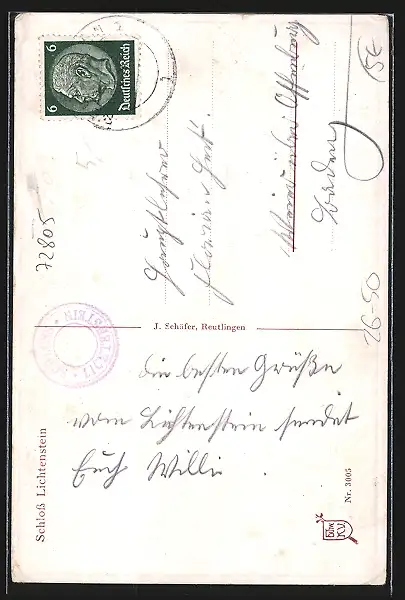 Deutsches Reich
6
6
Hauptlehrer
Florian
bei Offenburg
Baden
72805
26-50
J. Schäfer, Reutlingen
LICHTENSTEIN
Die besten Grüße
vom Lichtenstein sendet
Euch Willi
Schloß Lichtenstein
Nr. 3005